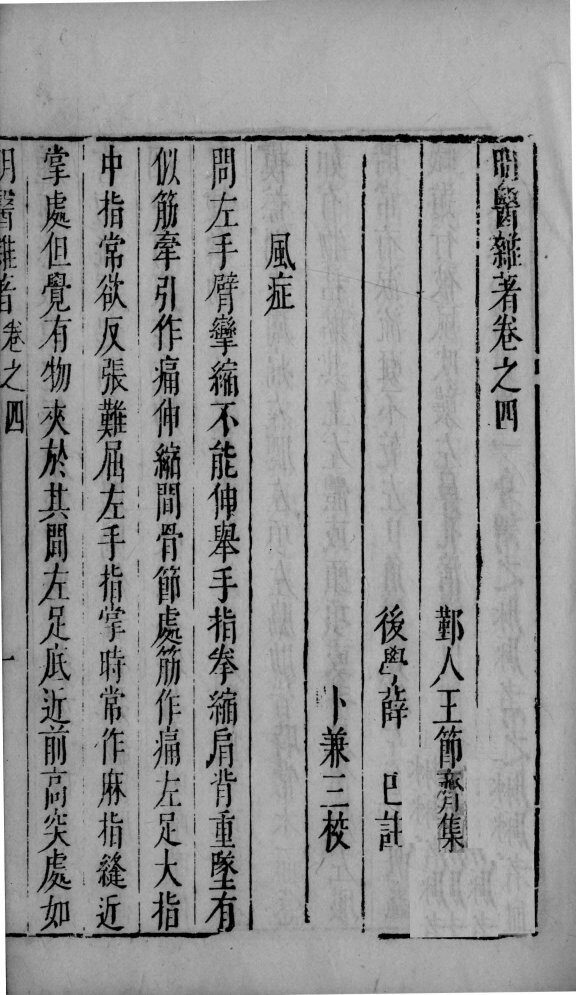 明醫雜著卷之四
鄞人王節齋集
後學薛 已註
卜兼三校
風症
問左手臂攣縮不能伸舉手指拳縮肩背重墜有
似筋牽引作痛伸縮間骨節處筋作痛左足大指
中指常欲反張難屈左手指掌時常作麻指縫近
掌處但覺有物夾於其間左足底近前高突處如
明醫雜著卷之四 一